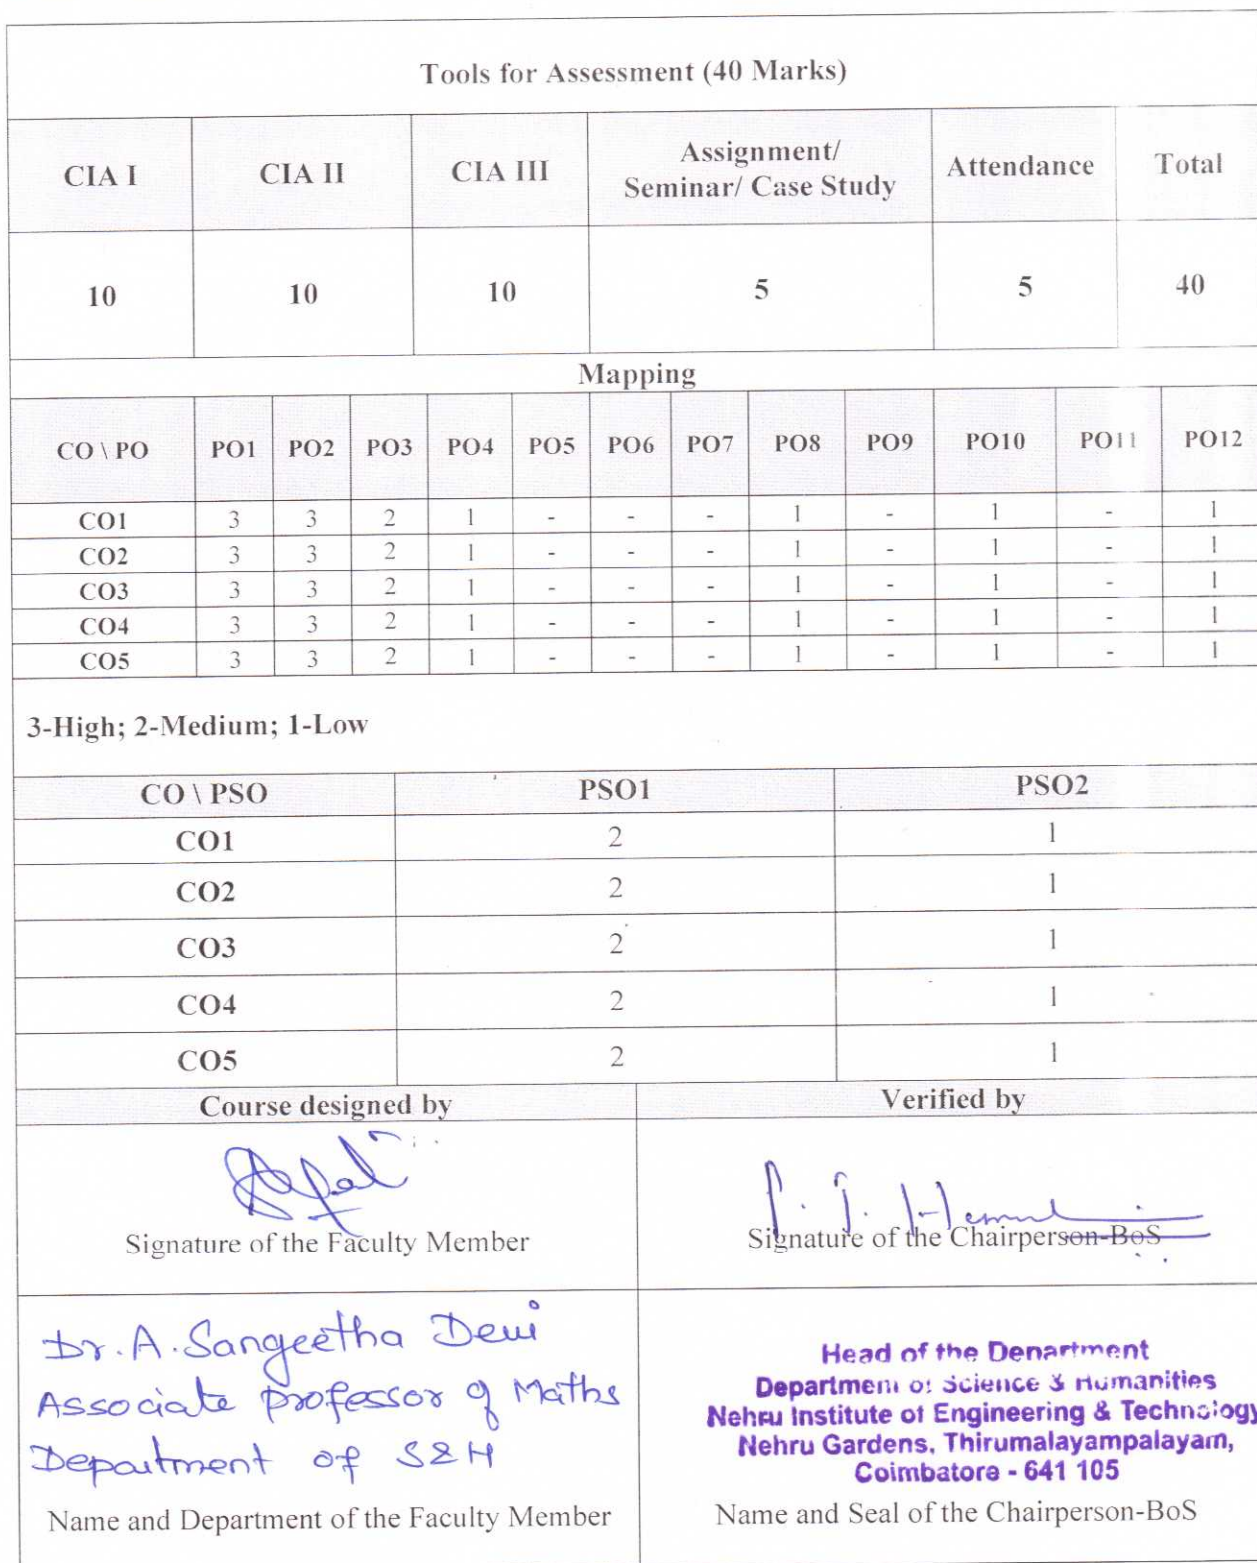 Tools for Assessment (40 Marks)
CIA I CIA II CIA III Assignment/ Seminar/ Case Study Attendance Total
10 10 10 5 5 40
Mapping
CO \ PO PO1 PO2 PO3 PO4 PO5 PO6 PO7 PO8 PO9 PO10 PO11 PO12
CO1 3 3 2 1 - - - 1 - 1 - 1
CO2 3 3 2 1 - - - 1 - 1 - 1
CO3 3 3 2 1 - - - 1 - 1 - 1
CO4 3 3 2 1 - - - 1 - 1 - 1
CO5 3 3 2 1 - - - 1 - 1 - 1
3-High; 2-Medium; 1-Low
CO \ PSO PSO1 PSO2
CO1 2 1
CO2 2 1
CO3 2 1
CO4 2 1
CO5 2 1
Course designed by
Signature of the Faculty Member
Dr. A. Sangeetha Devi
Associate professor of Maths
Department of S&H
Name and Department of the Faculty Member
Verified by
Signature of the Chairperson-BoS
Head of the Department
Department of Science & Humanities
Nehru Institute of Engineering & Technology
Nehru Gardens, Thirumalayampalayam,
Coimbatore - 641 105
Name and Seal of the Chairperson-BoS